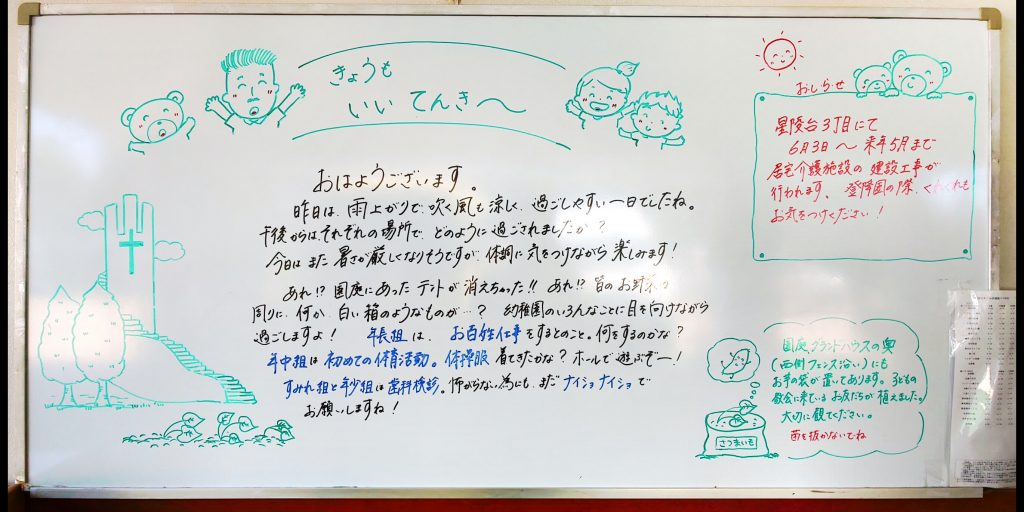 きょうも
いい てんき〜
おはようございます。
昨日は、雨上がりで、吹く風も涼しく、過ごしやすい一日でしたね。
午後からは、それぞれの場所で、どのように過ごされましたか？
今日はまた暑さが厳しくなりそうですが、体調に気をつけながら楽しみます！
あれ!? 園庭にあったテントが消えちゃった!! あれ？ 皆のお野菜の
周りに、何か、白い箱のようなものが…？ 幼稚園のいろんなことに目を向けながら
過ごしますよ！ 年長組は、お百姓仕事をするとのこと。何をするのかな？
年中組は初めての体育活動。体操服着てきたかな？ ホールで遊ぶぞー！
すみれ組と年少組は歯科検診。怖がらない為にも、まだナイショナイショで
お願いしますね！
おしらせ
星陵台3丁目にて
6月3日〜来年5月まで
居宅介護施設の建設工事が
行われます。登降園の際、くれぐれも
お気をつけください！
園庭、クラントハウスの奥
(西側フェンス沿い)にも
お芋の袋が置いてあります。子どもの
教会に来ているお友だちが植えました。
大切に観てください。
苗を抜かないでね
さつまいも